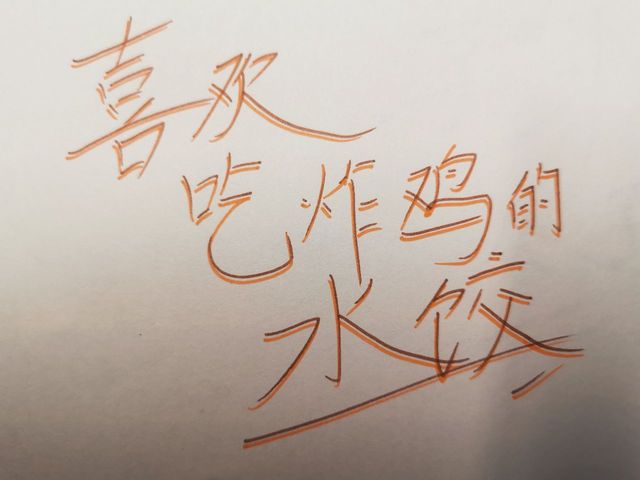 喜欢
吃炸鸡的
水饺